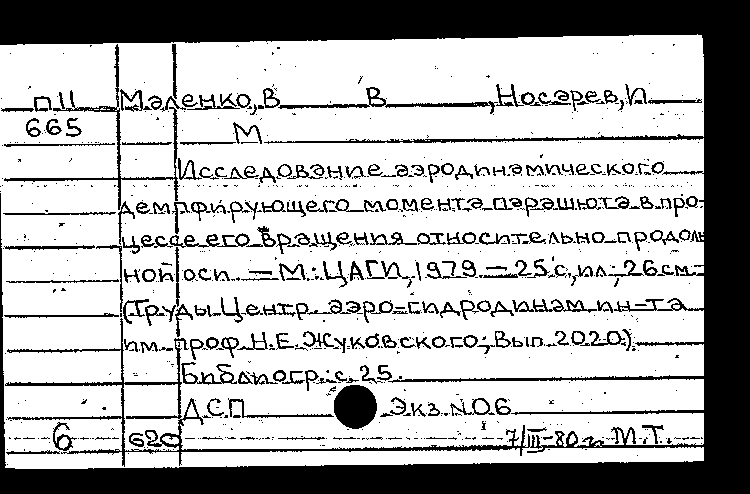 п11 Маленко, В В , Носарев, И
665 М
Исследование аэродинамического
демпфирующего момента парашюта в про-
цессе его вращения относительно продоль
ной оси. — М.: ЦАГИ, 1979 — 25 с, ил.; 26 см. —
(Труды Центр. аэро-гидродинам. ин-та
им. проф. Н.Е. Жуковского; Вып. 2020).
Библиогр.: с. 25.
ДСП Экз. N 06
6 620 7/III-80 г. М.Т.